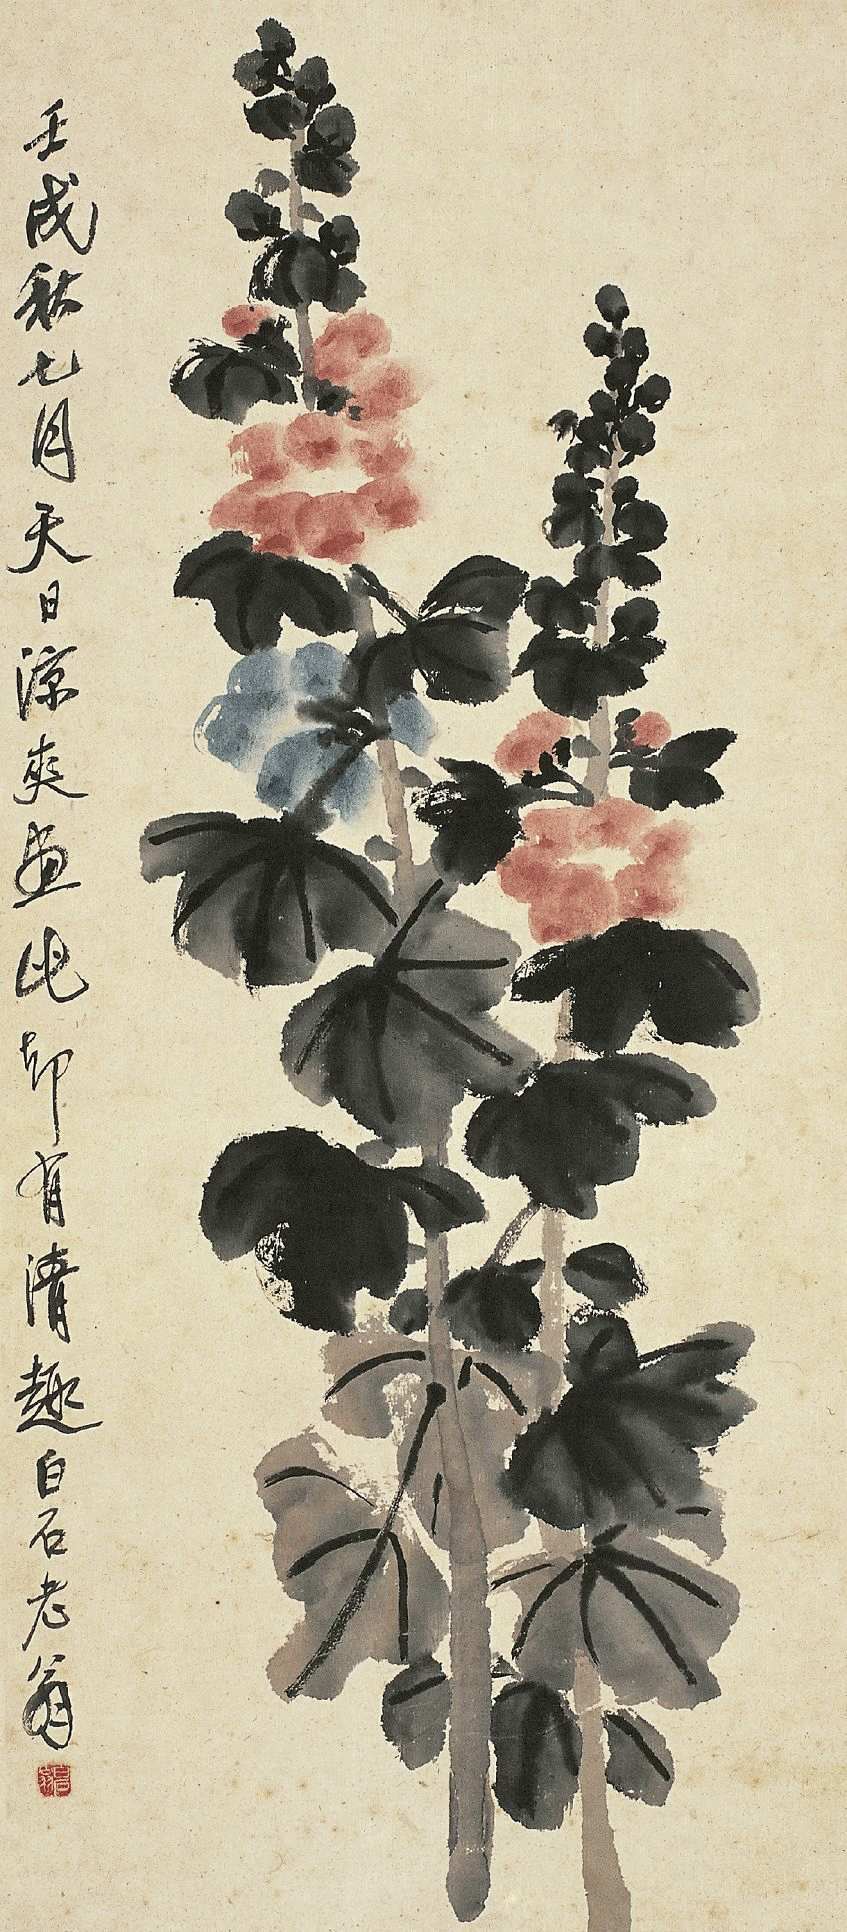 壬戌秋七月天日涼爽画此却有清趣白石老翁